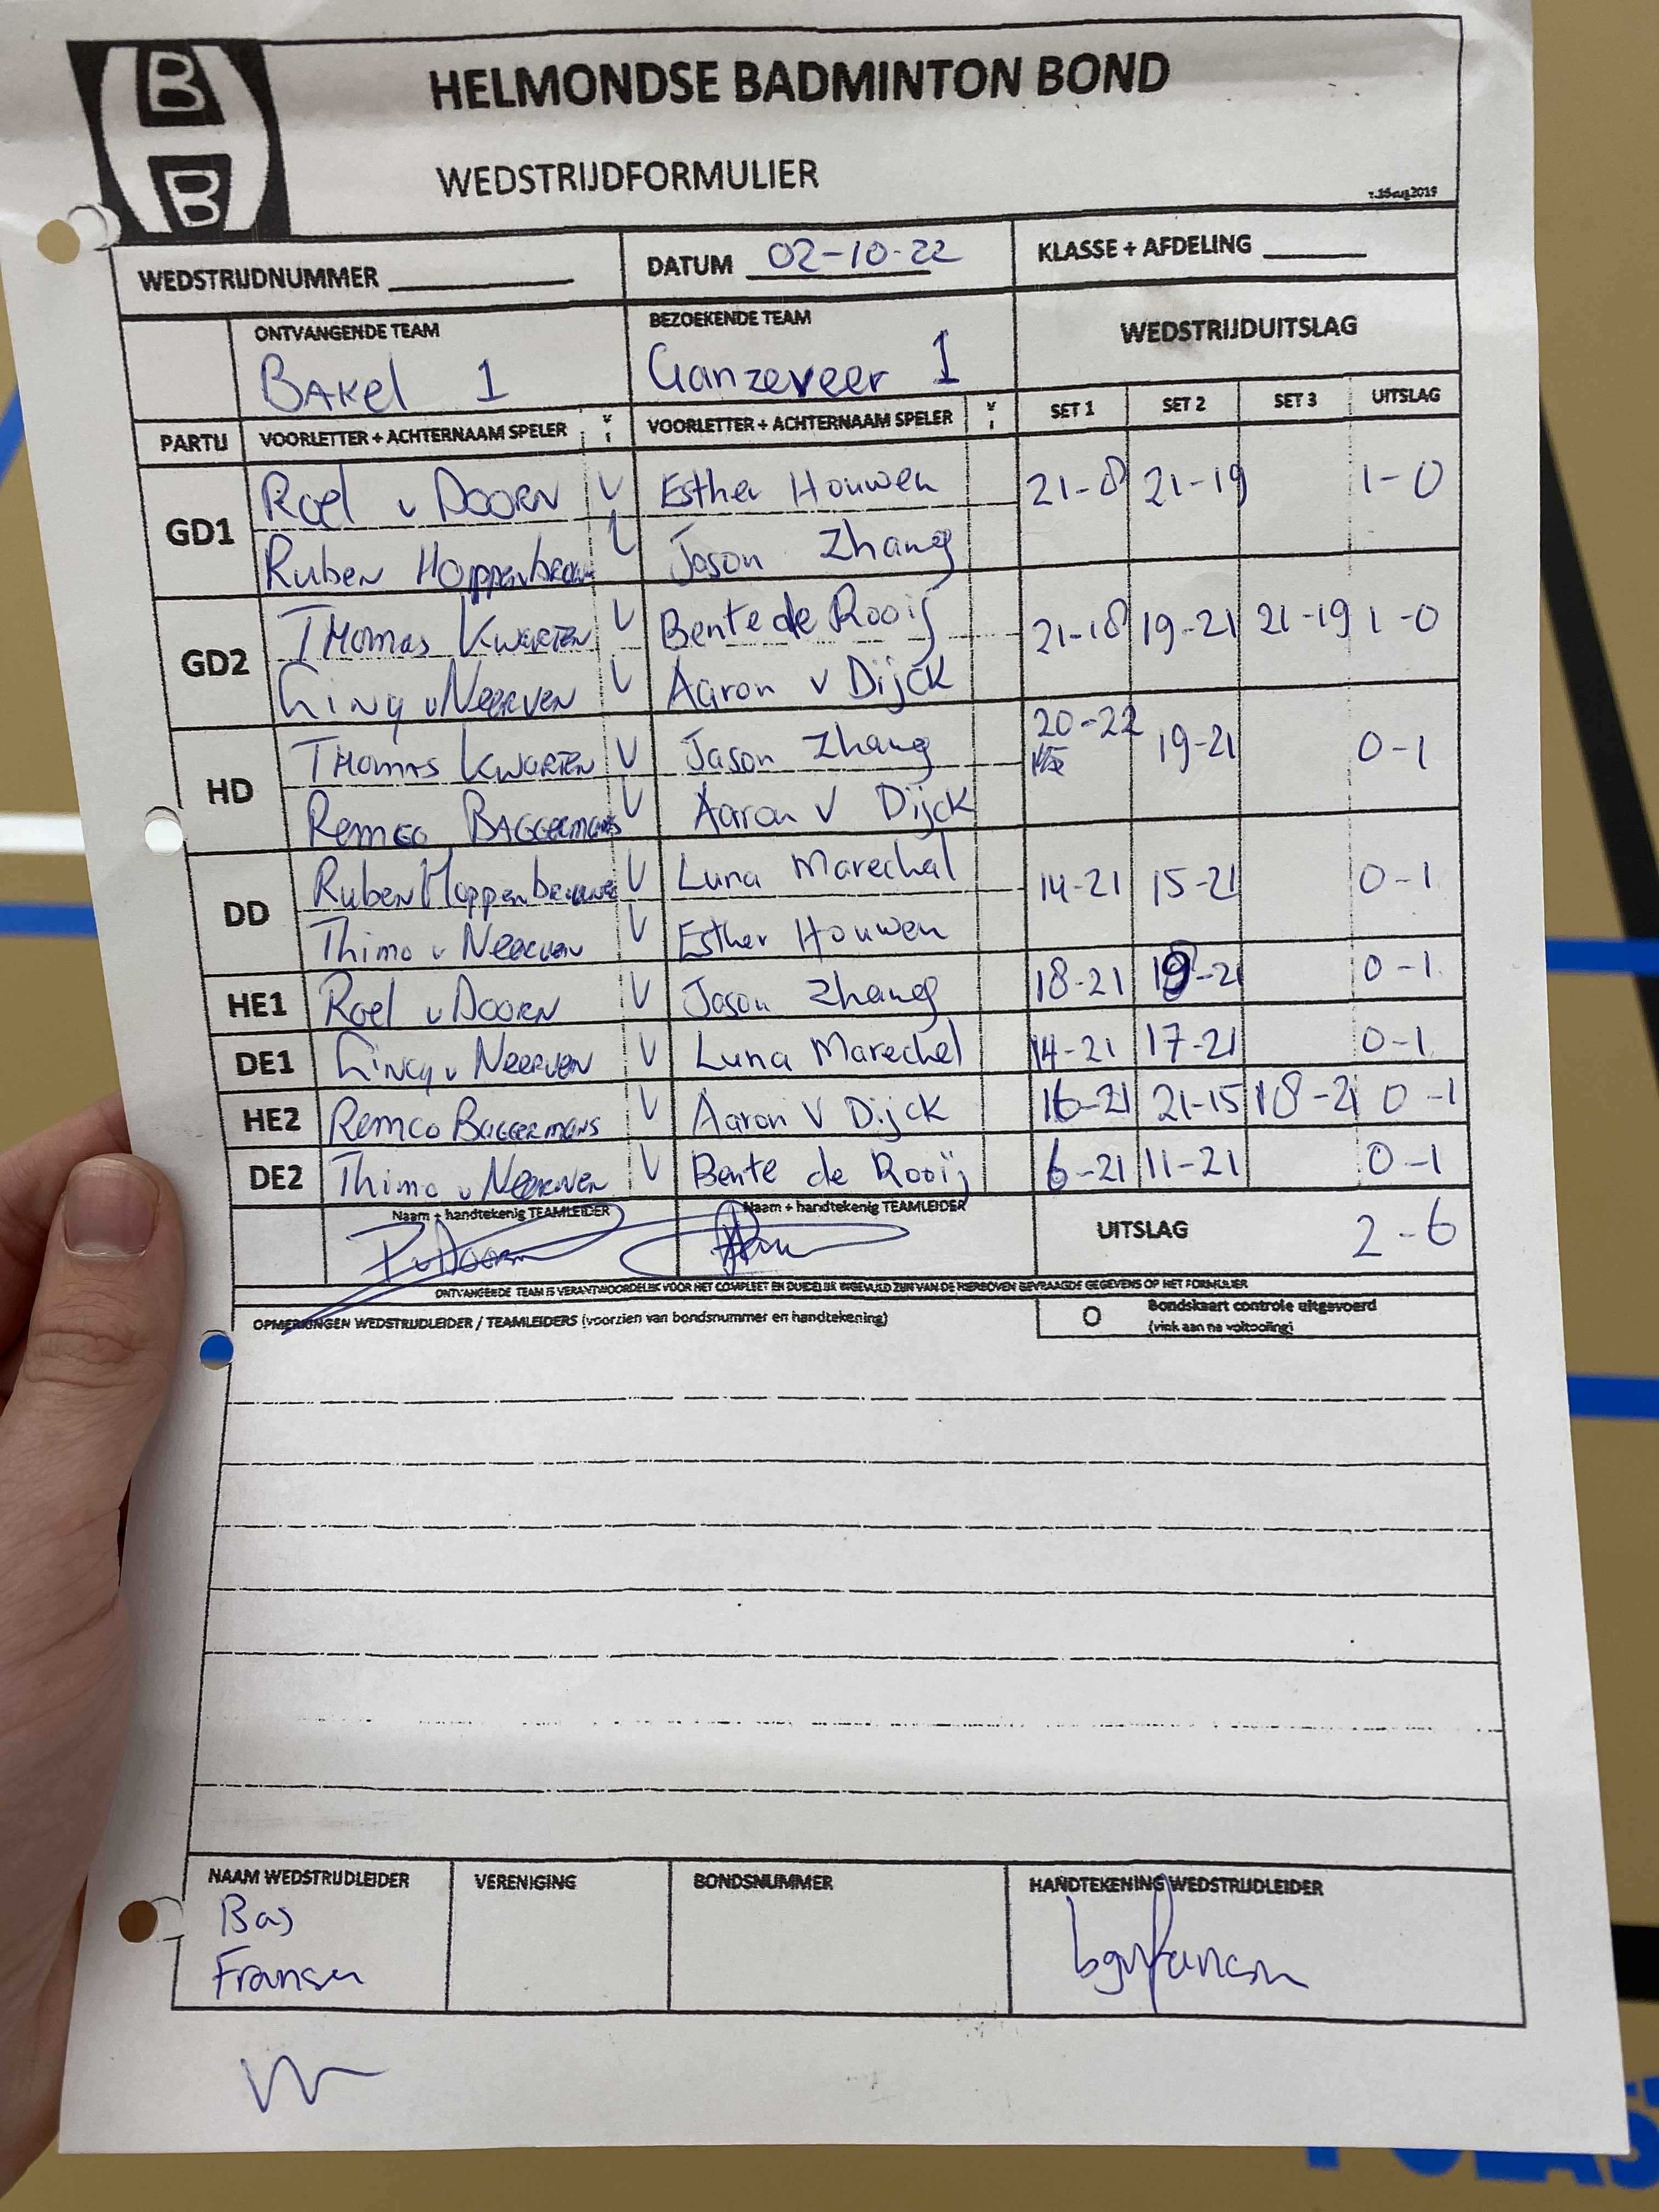 B
B
HELMONDSE BADMINTON BOND
WEDSTRIJDFORMULIER
WEDSTRIJDNUMMER
DATUM 02-10-22
KLASSE + AFDELING
ONTVANGENDE TEAM
BEZOEKENDE TEAM
WEDSTRIJDUITSLAG
BAKel 1
Ganzeveer 1
PARTIJ VOORLETTER + ACHTERNAAM SPELER VOORLETTER + ACHTERNAAM SPELER SET 1 SET 2 SET 3 UITSLAG
GD1 Roel v DOORN V Esther Houwen 21-8 21-19 1-0
Ruben Jason Zhang
GD2 THomas V Bente de Rooij 21-18 19-21 21-19 1-0
v Neerven V Aaron v Dijck
HD THomas V Jason Zhang 20-22 19-21 0-1
Remco BAGGermans V Aaron v Dijck
DD Ruben V Luna Marechal 14-21 15-21 0-1
Thimo v Neerven V Esther Houwen
HE1 Roel v DOORN V Jason Zhang 18-21 19-21 0-1
DE1 v Neerven V Luna Marechel 14-21 17-21 0-1
HE2 Remco BAGGermans V Aaron V Dijck 16-21 21-15 18-21 0-1
DE2 Thimo v Neerven V Bente de Rooij 6-21 11-21 0-1
Naam + handtekenig TEAMLEIDER
Naam + handtekenig TEAMLEIDER
UITSLAG 2-6
ONTVANGENDE TEAM IS VERANTWOORDELIJK VOOR HET COMPLEET EN DUIDELIJK INGEVULD ZIJN VAN DE HIERBOVEN GEVRAAGDE GEGEVENS OP HET FORMULIER
OPMERKINGEN WEDSTRIJDLEIDER / TEAMLEIDERS (voorzien van bondsnummer en handtekening)
O Bondskaart controle uitgevoerd
(vink aan na voltooiing)
NAAM WEDSTRIJDLEIDER
VERENIGING
BONDSNUMMER
HANDTEKENING WEDSTRIJDLEIDER
Bas
Fransen